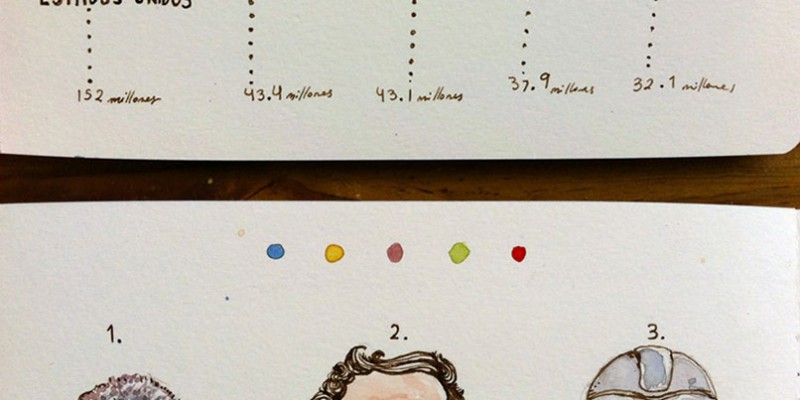 ESTADOS UNIDOS
152 millones 43.4 millones 43.1 millones 37.9 millones 32.1 millones
1. 2. 3.